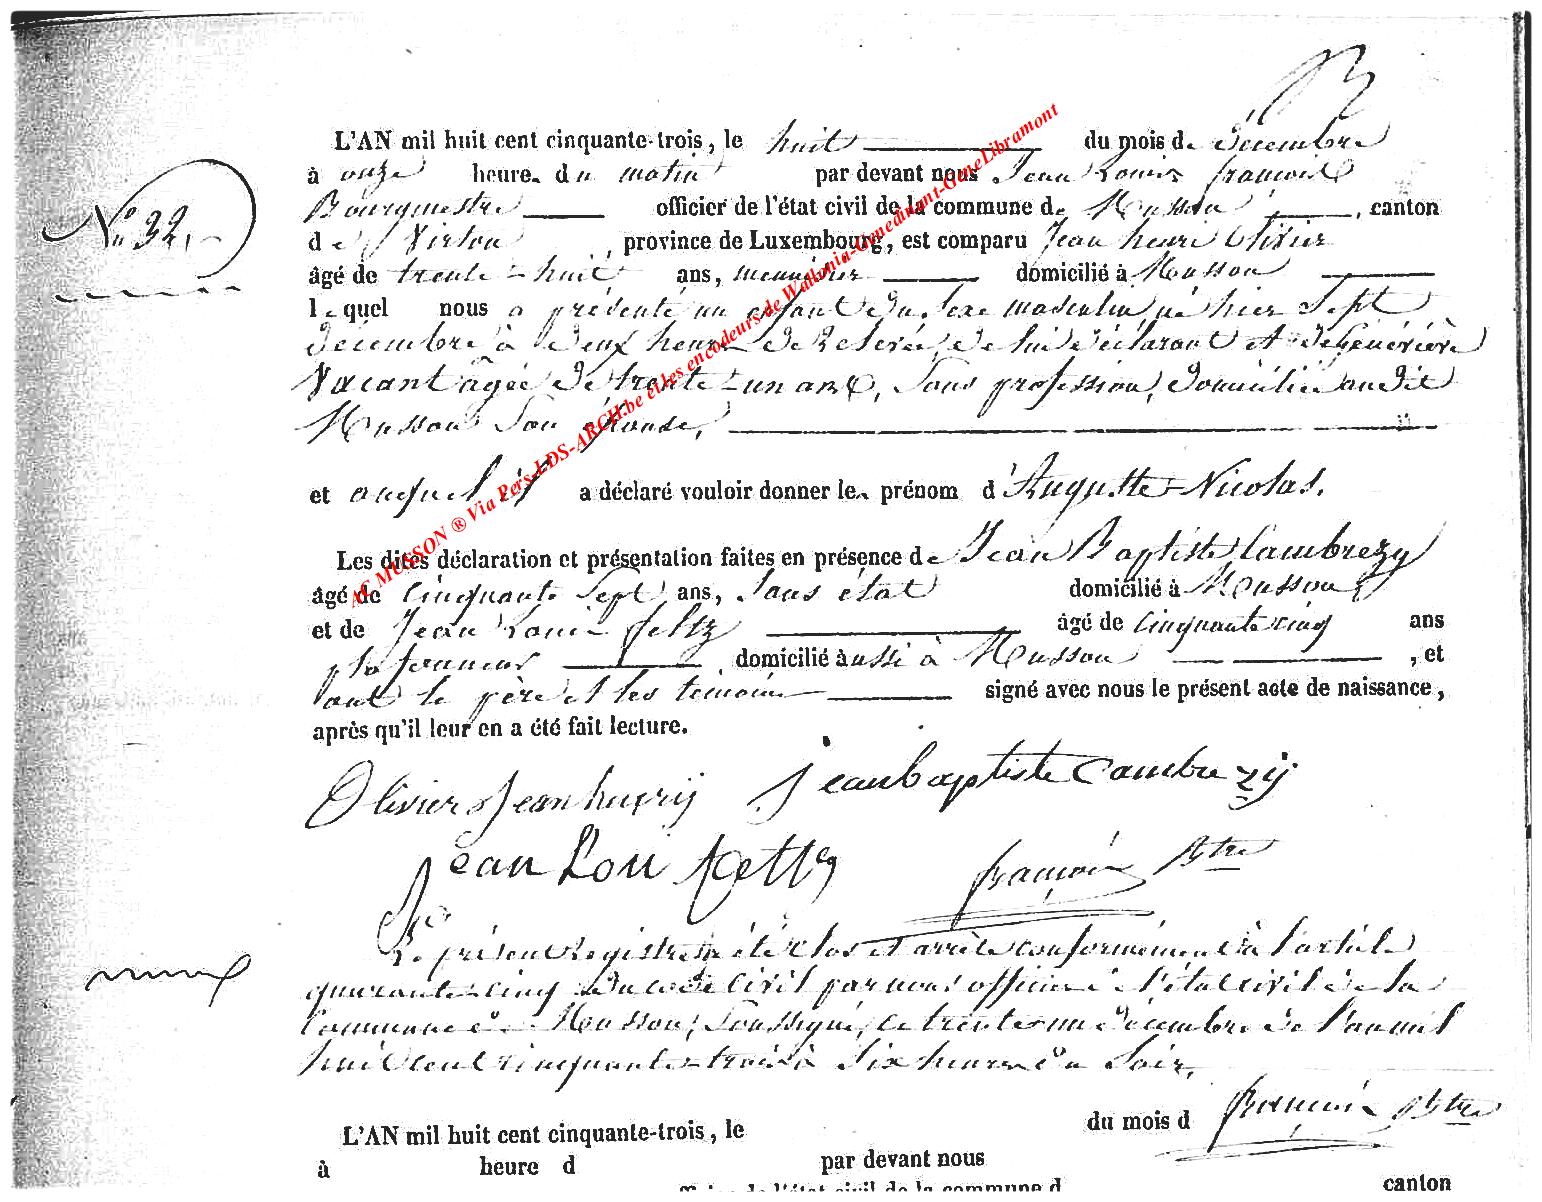 L'AN mil huit cent cinquante-trois, le huit du mois de Décembre
à onze heure. du matin par devant nous Jean Louis françois
Bourgmestre officier de l'état civil de la commune de Musson, canton
de Virton province de Luxembourg, est comparu Jean henri Olivier
âgé de trente-huit ans, meunier domicilié à Musson
lequel nous a présenté un enfant du Sexe masculin né hier Sept
Décembre à Deux heures De Relevée, De lui Déclarant et De Genéviève
Vacant âgée De trente-un ans, Sans profession, Domiciliée audit
Musson Son épouse,
et auquel il a déclaré vouloir donner les prénom d'Auguste-Nicolas.
Les dites déclaration et présentation faites en présence de Jean Baptiste Cambrezy
âgé de Cinquante Sept ans, Sans état domicilié à Musson
et de Jean Louis feltz âgé de Cinquante cinq ans
plafonneur domicilié aussi à Musson, et
ont le père et les témoins signé avec nous le présent acte de naissance,
après qu'il leur en a été fait lecture.
N° 32,
Olivier Jean henrij Jeanbaptiste Cambrezij
Jean Loui françois Btre
Le présent Registre a été Clos et arrêté conformément à l'article
quarante-cinq Du code Civil par nous officier de l'état civil de la
Commune de Musson, Soussigné, ce trente un Décembre De l'an mil
huit cent cinquante-trois à Six heures Du Soir.
françois Btre
L'AN mil huit cent cinquante-trois, le du mois d
à heure d par devant nous
officier de l'état civil de la commune d canton
AC MUSSON ® Via Pers-LDS-ARCH.be et les encodeurs de Wallonia-Genedinant-GeneLibramont